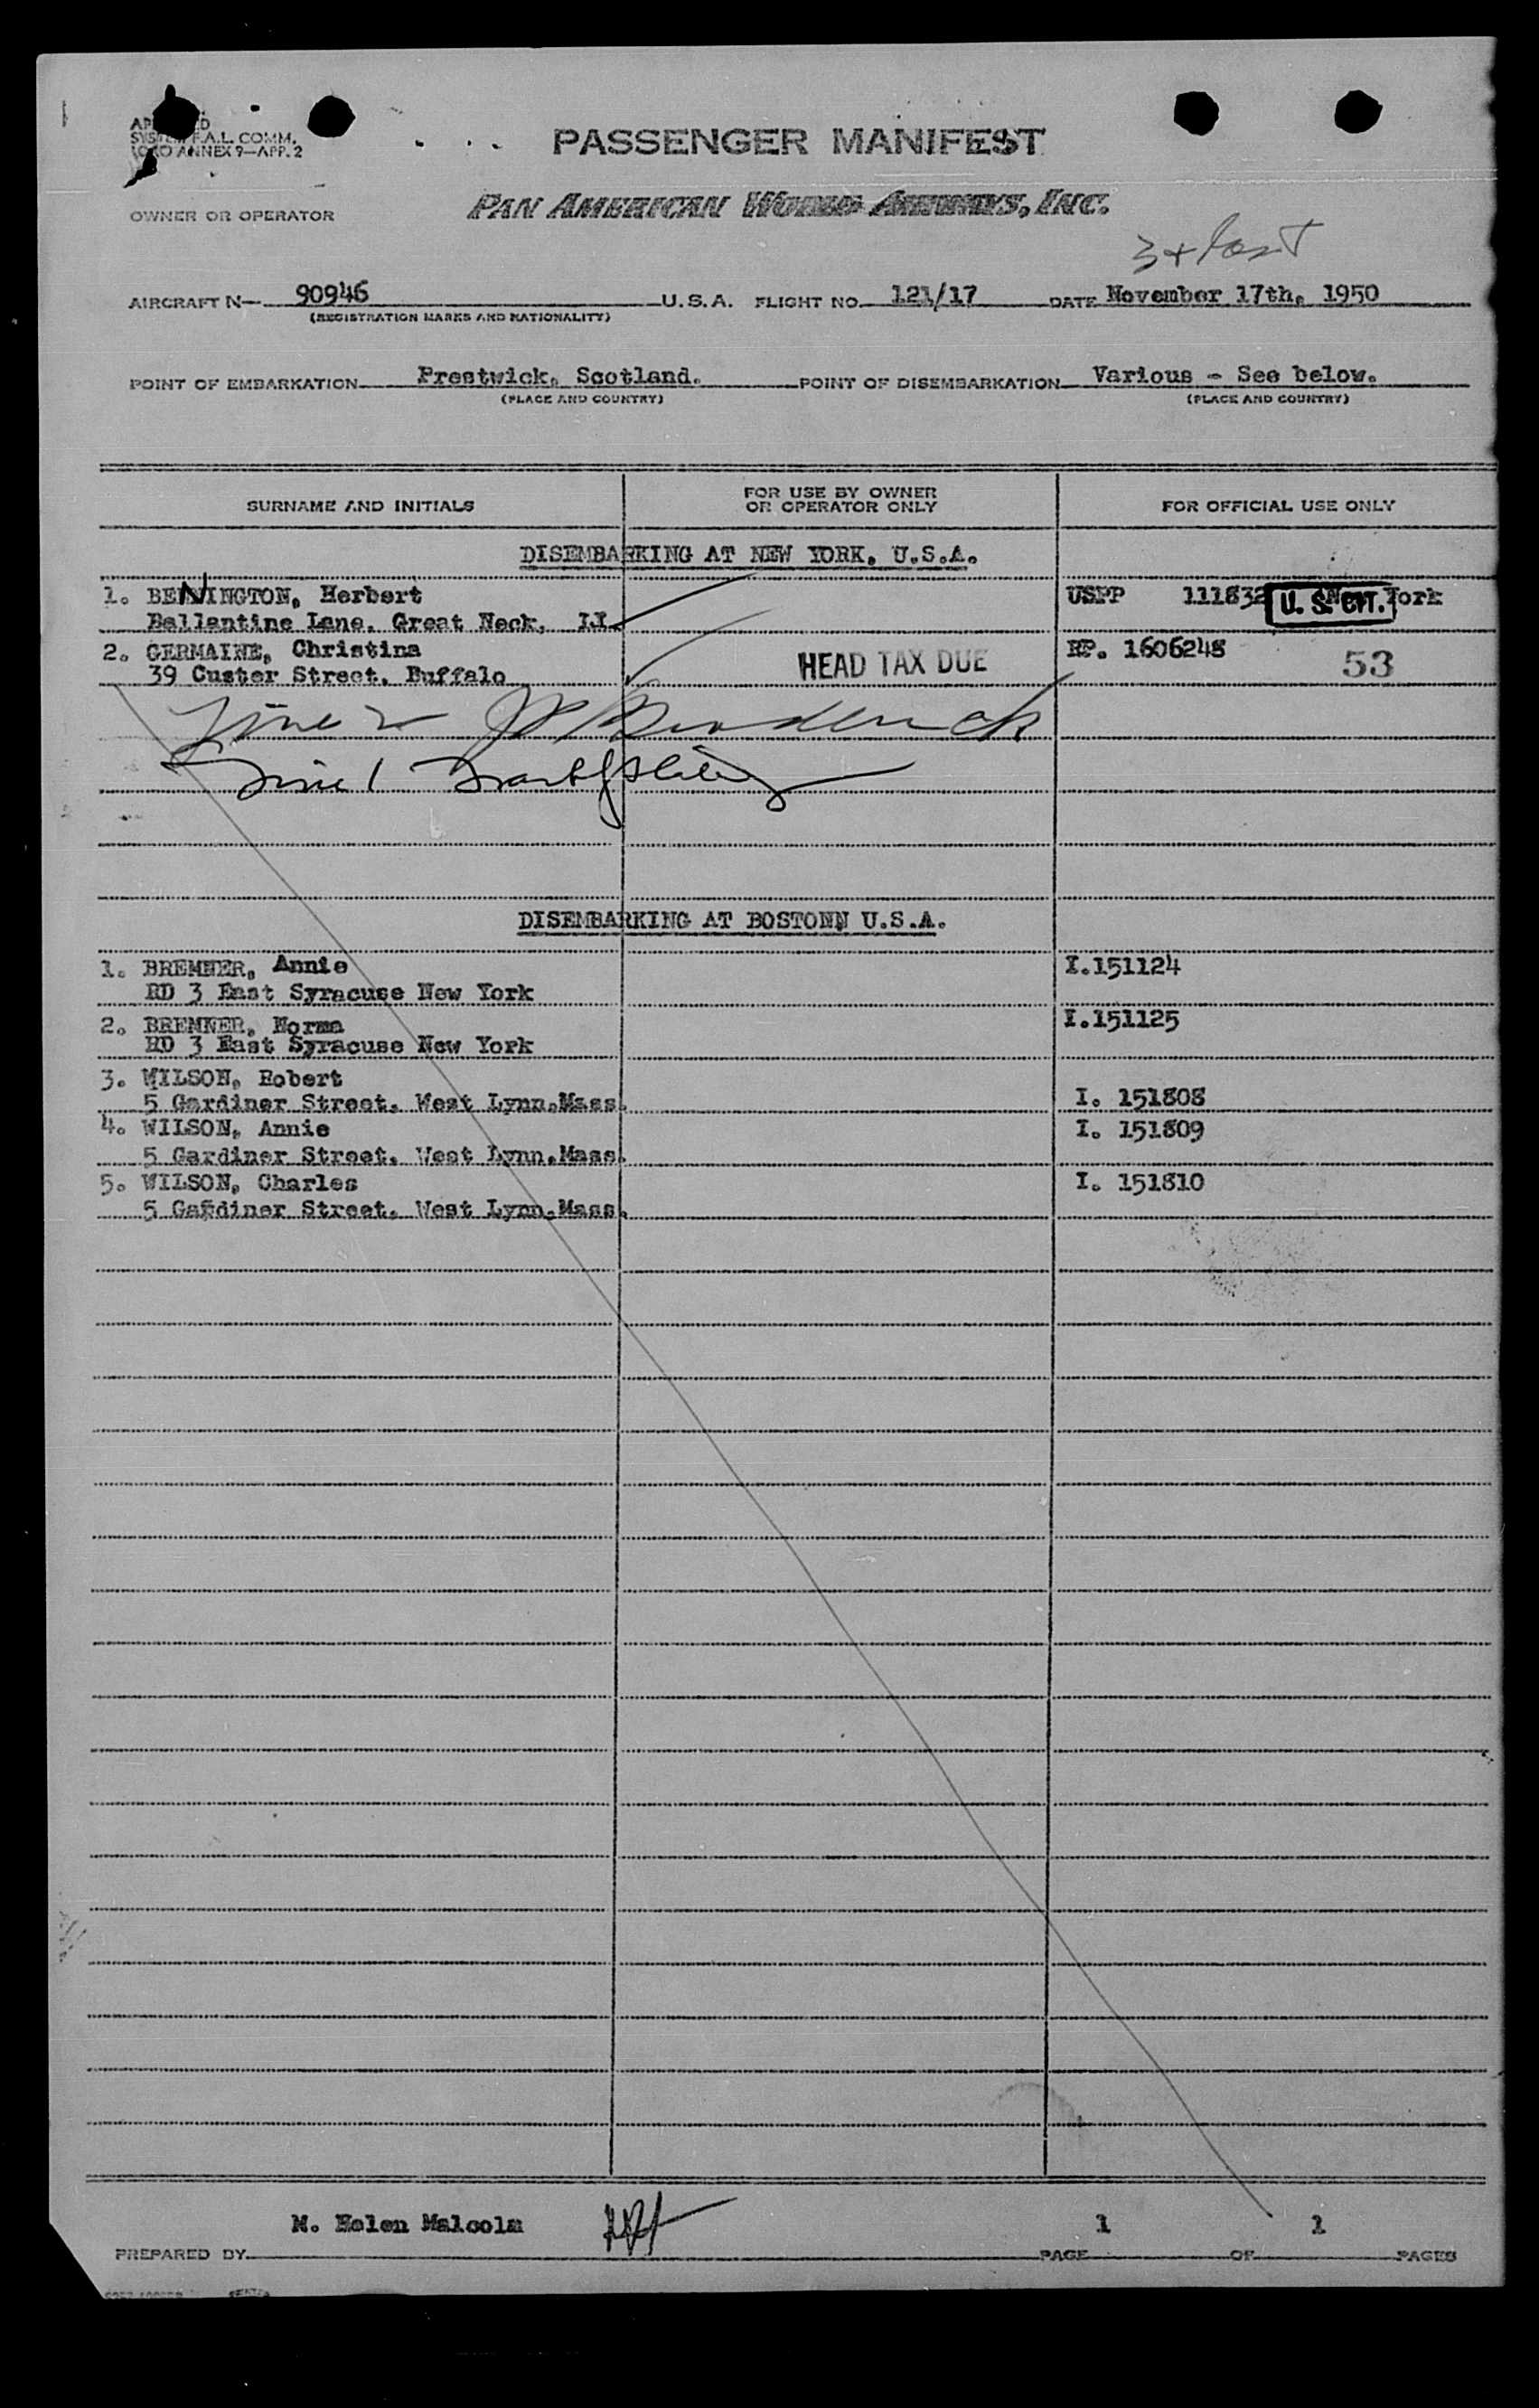 PASSENGER MANIFEST
SYSTEM F.A.L. COMM.
ANNEX 9—APP. 2
OWNER OR OPERATOR
PAN AMERICAN WORLD AIRWAYS, INC.
3 + last
AIRCRAFT N— 90946 U.S.A. FLIGHT NO. 121/17 DATE November 17th, 1950
(REGISTRATION MARKS AND NATIONALITY)
POINT OF EMBARKATION Prestwick, Scotland. POINT OF DISEMBARKATION Various - See below.
(PLACE AND COUNTRY) (PLACE AND COUNTRY)
SURNAME AND INITIALS FOR USE BY OWNER OR OPERATOR ONLY FOR OFFICIAL USE ONLY
DISEMBARKING AT NEW YORK, U.S.A.
1. BENNINGTON, Herbert USPP 111832 U. S. CIT. York
Ballantine Lane, Great Neck, LI
2. GERMAINE, Christina HEAD TAX DUE RP. 1606248 53
39 Custer Street, Buffalo
Line 2
Line 1
DISEMBARKING AT BOSTONN U.S.A.
1. BREMNER, Annie I.151124
RD 3 East Syracuse New York
2. BREMNER, Norma I.151125
RD 3 East Syracuse New York
3. WILSON, Robert
5 Gardiner Street, West Lynn,Mass. I. 151808
4. WILSON, Annie I. 151809
5 Gardiner Street, West Lynn,Mass.
5. WILSON, Charles I. 151810
5 Gardiner Street, West Lynn,Mass.
M. Helen Malcolm 1 1
PREPARED BY PAGE OF PAGES